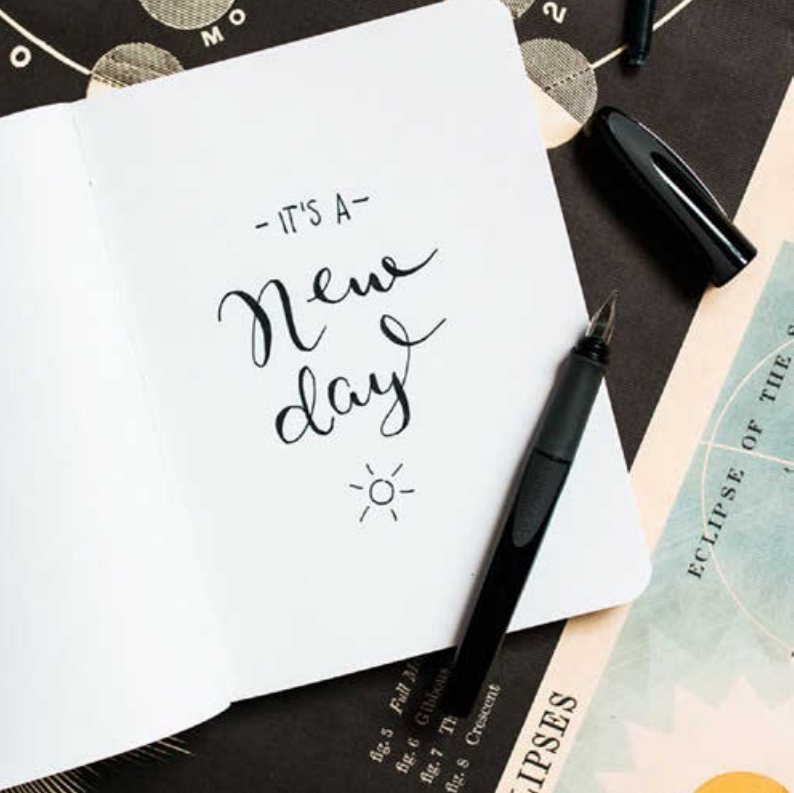 O
MO
2
- IT'S A -
New
day
ECLIPSE OF THE S
fig. 5 Full M
fig. 6 Gibbous
fig. 7 Th
fig. 8 Crescent
LIPSES